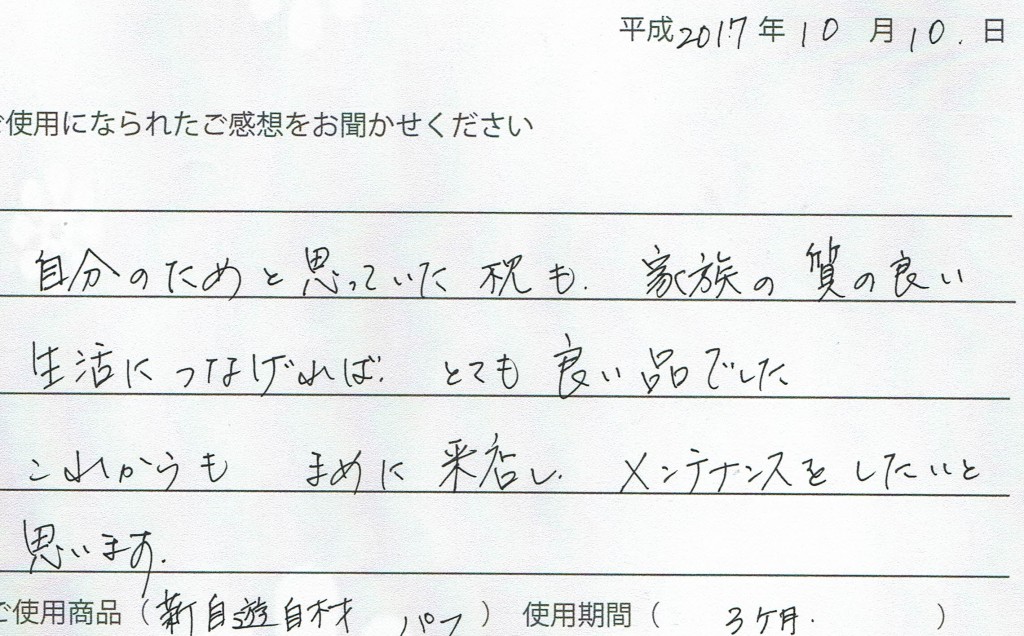 平成2017年10月10.日
ご使用になられたご感想をお聞かせください
自分のためと思っていた枕も.家族の質の良い
生活につなげれば.とても良い品でした
これからもまめに来店し.メンテナンスをしたいと
思います.
ご使用商品(新自遊自材 パフ)使用期間(3ケ月.)